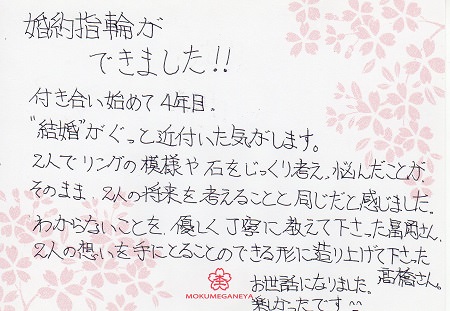 婚約指輪が
できました!!
付き合い始めて4年目。
"結婚"がぐっと近付いた気がします。
2人でリングの模様や石をじっくり考え、悩んだことが
そのまま、2人の将来を考えることと同じだと感じました。
わからないことを、優しく丁寧に教えて下さった冨岡さん、
2人の想いを手にとることのできる形に造り上げて下さった
髙橋さん。
お世話になりました。
楽しかったです^^
MOKUMEGANEYA